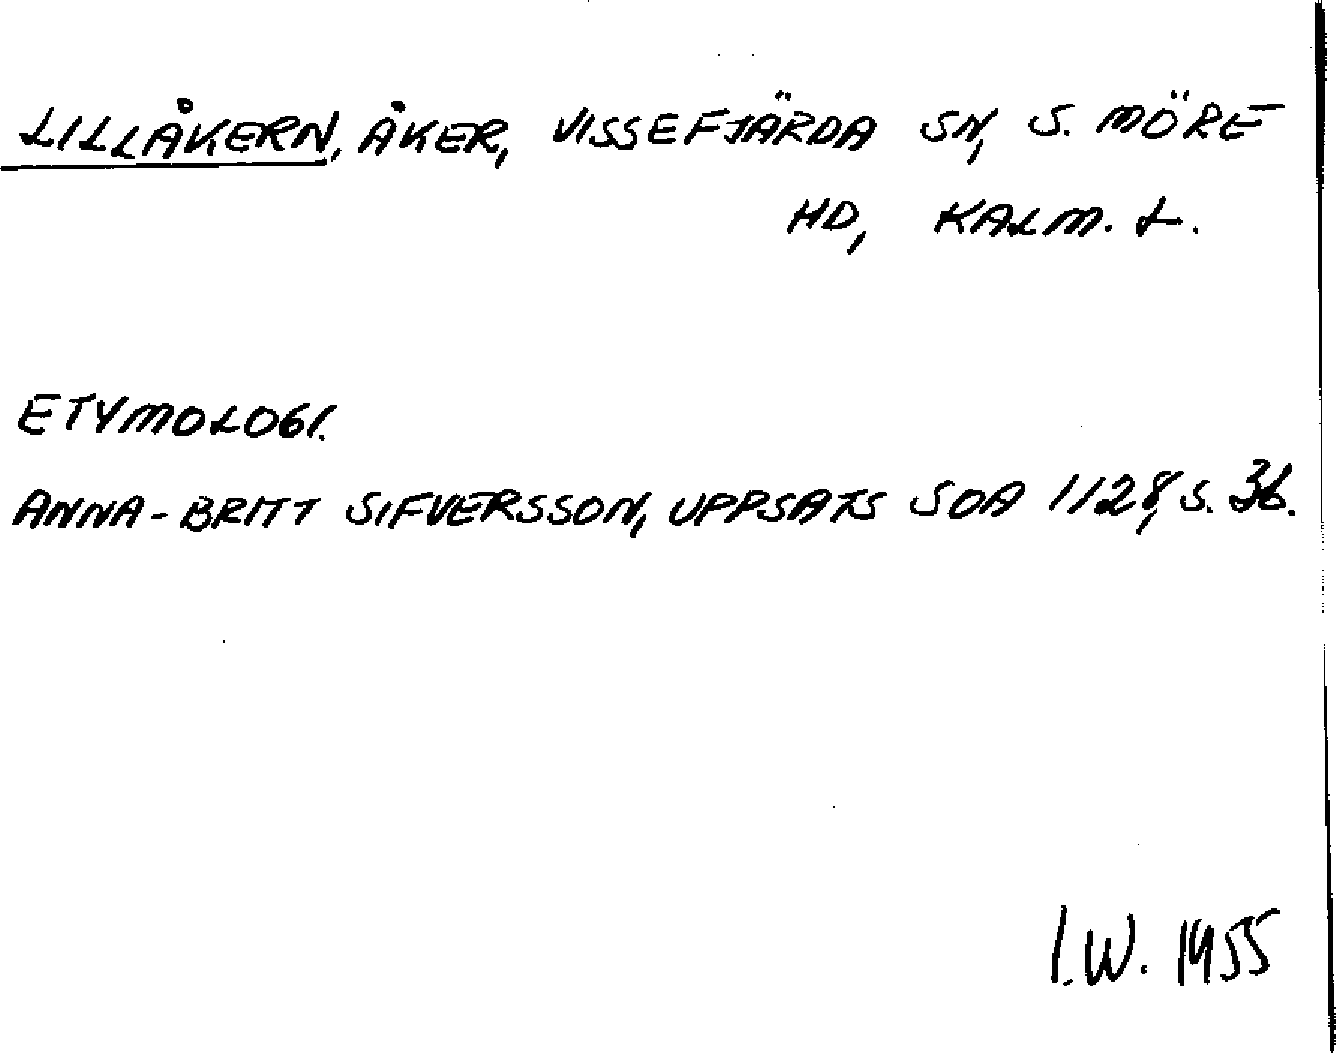 LILLÅKERN, ÅKER, VISSEFJÄRDA SN, S. MÖRE
HD, KALM. L.
ETYMOLOGI.
ANNA-BRITT SIFVERSSON, UPPSATS SOA 1128, S. 36.
I.W. 1955